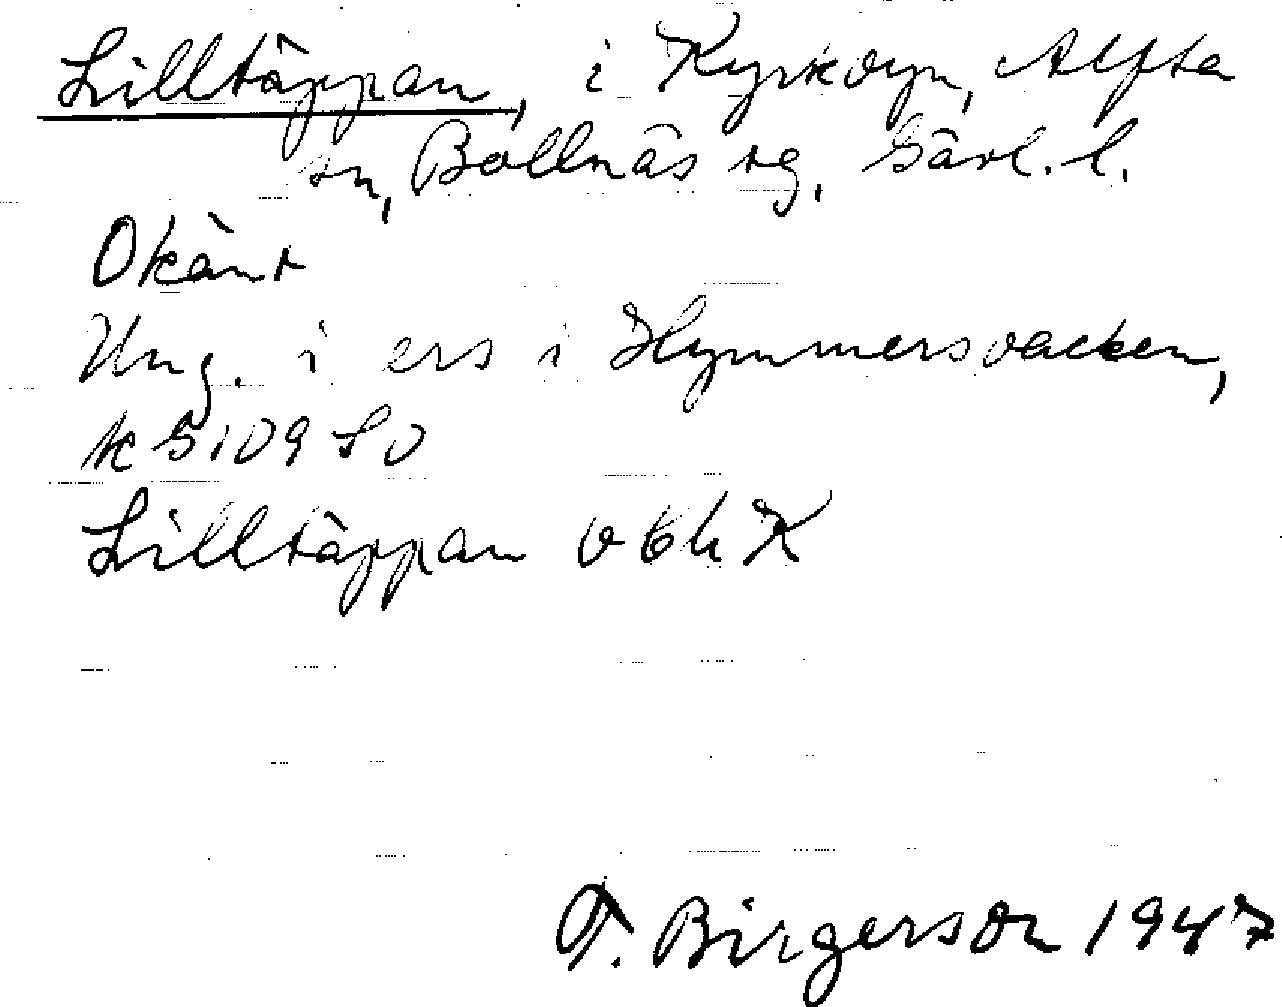 Lilltäppan, i Kyrkbyn, Alfta
sn, Bollnäs tg, Gävl. l.
Okänt
Ung. i ers i Hymmersbacken,
k 5109 SO
Lilltäppan
T. Birgerson 1947